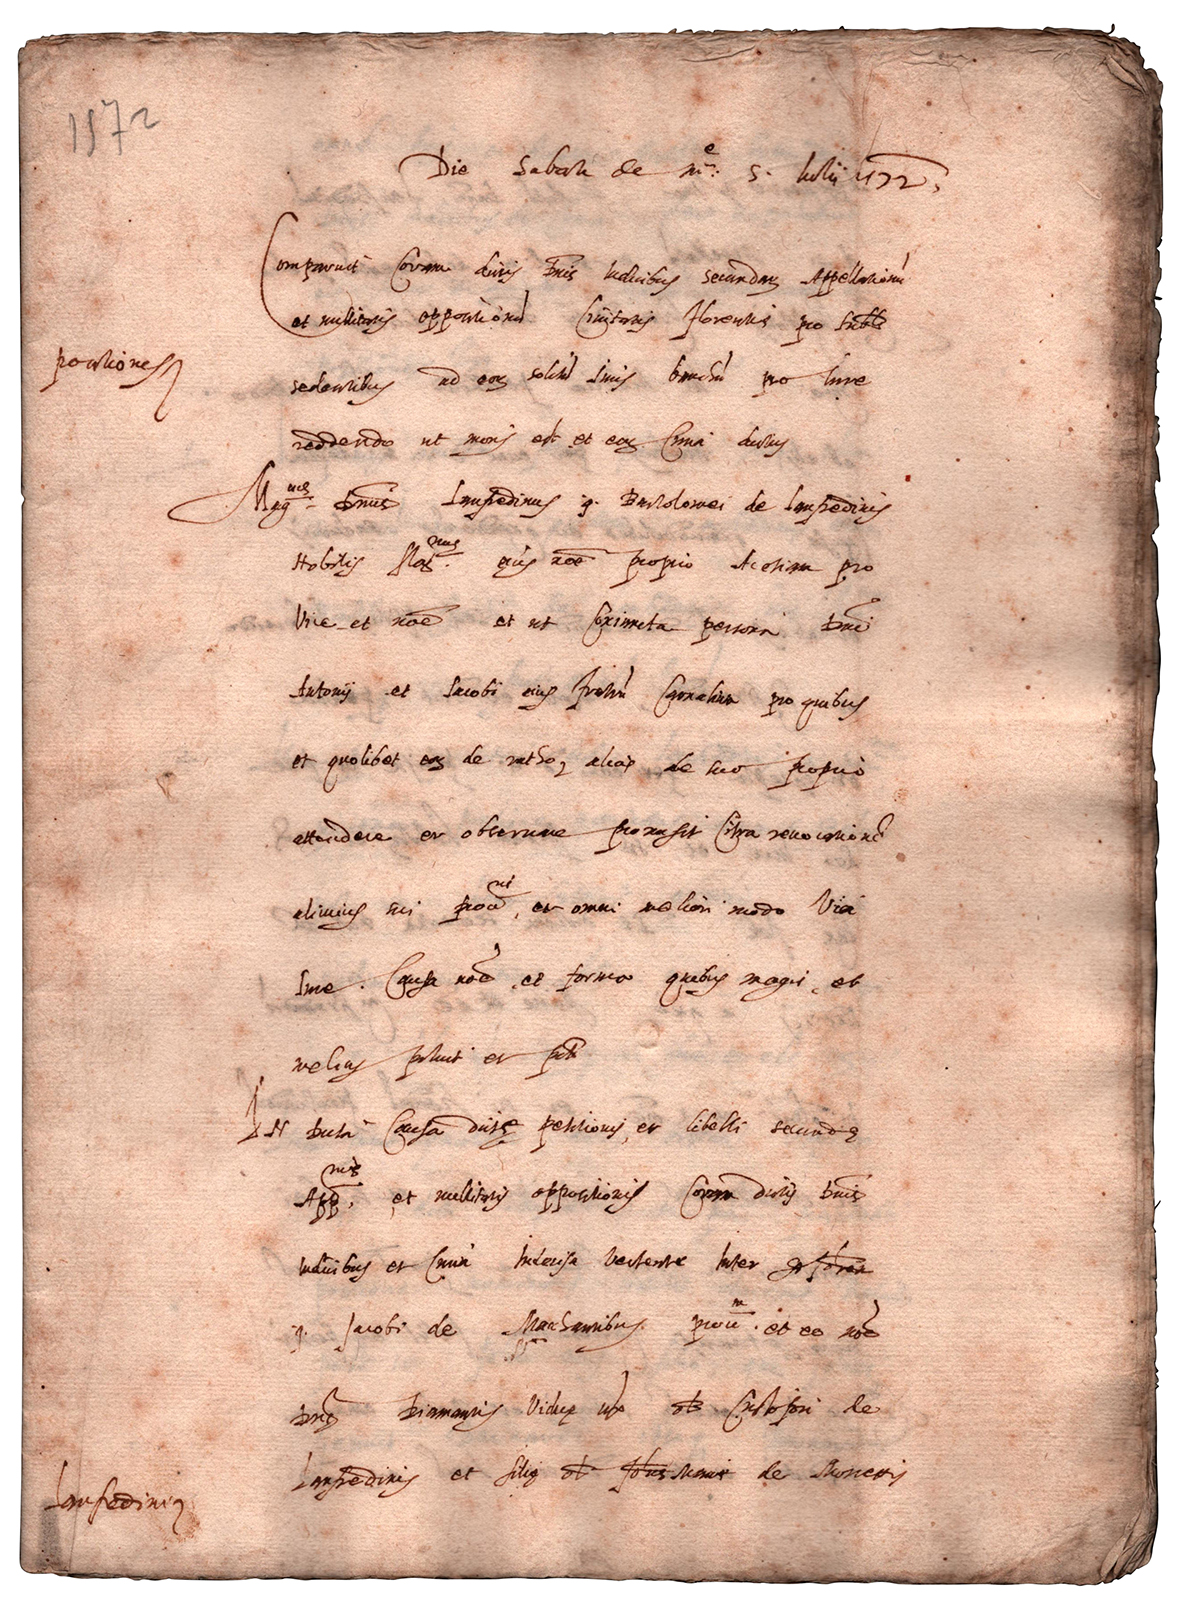 1572
Die Sabati de m.e 5. Iulij 1572
Comparuit Coram dictis Dnis Iudicibus secundarum Appellationum
et nullitatis oppositionum Civitatis Florentie pro
positiones
sedentibus ad eorum solitum Iuris banchum pro Iure
reddendo ut moris est et eorum Curia
Mag.cus Dnus Lanfredinus q. Bartolomei de Lanfredinis
Nobilis eius noe proprio Ac etiam pro
Vice et noe et ut Coniuncta persona Dni
Antonij et Iacobi eius fratrum Carnalium pro quibus
et quolibet eorum de ratho alias de suo proprio
attendere et observare promisit Citra revocationem
alicuius sui procu.ris, et omni meliori modo Via
Iure. Causa noe et forma quibus magis, et
melius potuit et potest
In Causa petitionis et libelli secundae
App.nis, et nullitatis oppositionis Coram dictis Dnis
Iudicibus et Curia Indecisa Vertente Inter
q. Jacobi de procu. et eo noe
Diamantis Vidue Cristofori de
Lanfredinis et filie de
Lanfredinis